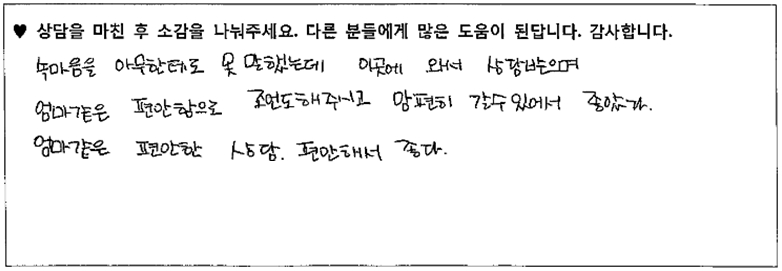 ♥ 상담을 마친 후 소감을 나눠주세요. 다른 분들에게 많은 도움이 된답니다. 감사합니다.
속마음을 아무한테도 못 말했는데 이곳에 와서 상담받으며
엄마같은 편안함으로 조언도해주시고 맘편히 갈수있어서 좋았다.
엄마같은 편안한 상담. 편안해서 좋다.